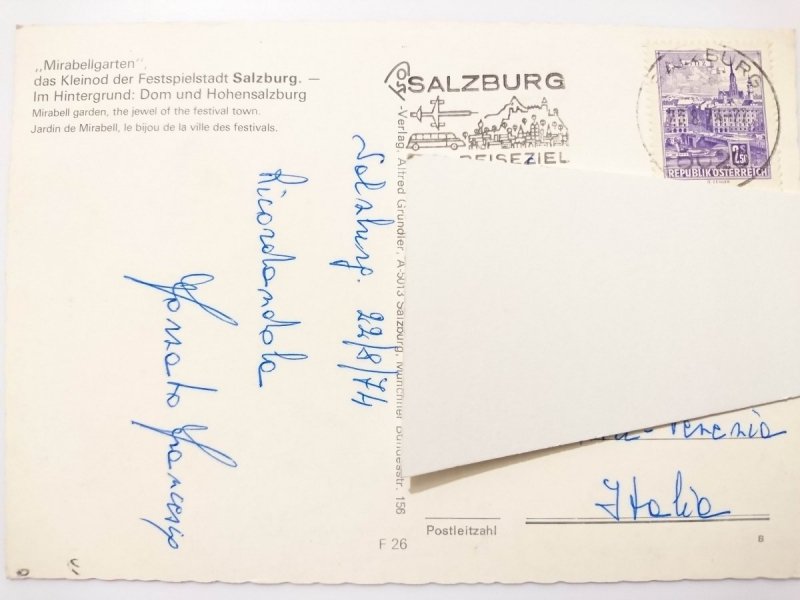 „Mirabellgarten",
das Kleinod der Festspielstadt Salzburg. —
Im Hintergrund: Dom und Hohensalzburg
Mirabell garden, the jewel of the festival town.
Jardin de Mirabell, le bijou de la ville des festivals.
Salzburg. 22/8/74
Ricordandola
Francesco
-Verlag, Alfred Gründler, A-5013 Salzburg, Münchner Bundesstr. 156
SALZBURG
REISEZIEL
2.50
REPUBLIK ÖSTERREICH
Venezia
Italia
Postleitzahl
F 26
8